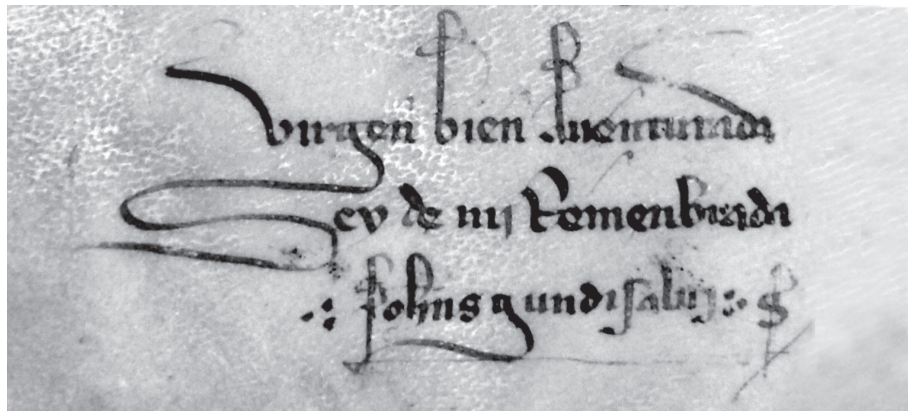 virgen bien Auenturada
Sey de mj Remenbrada
Johns gundisaluj